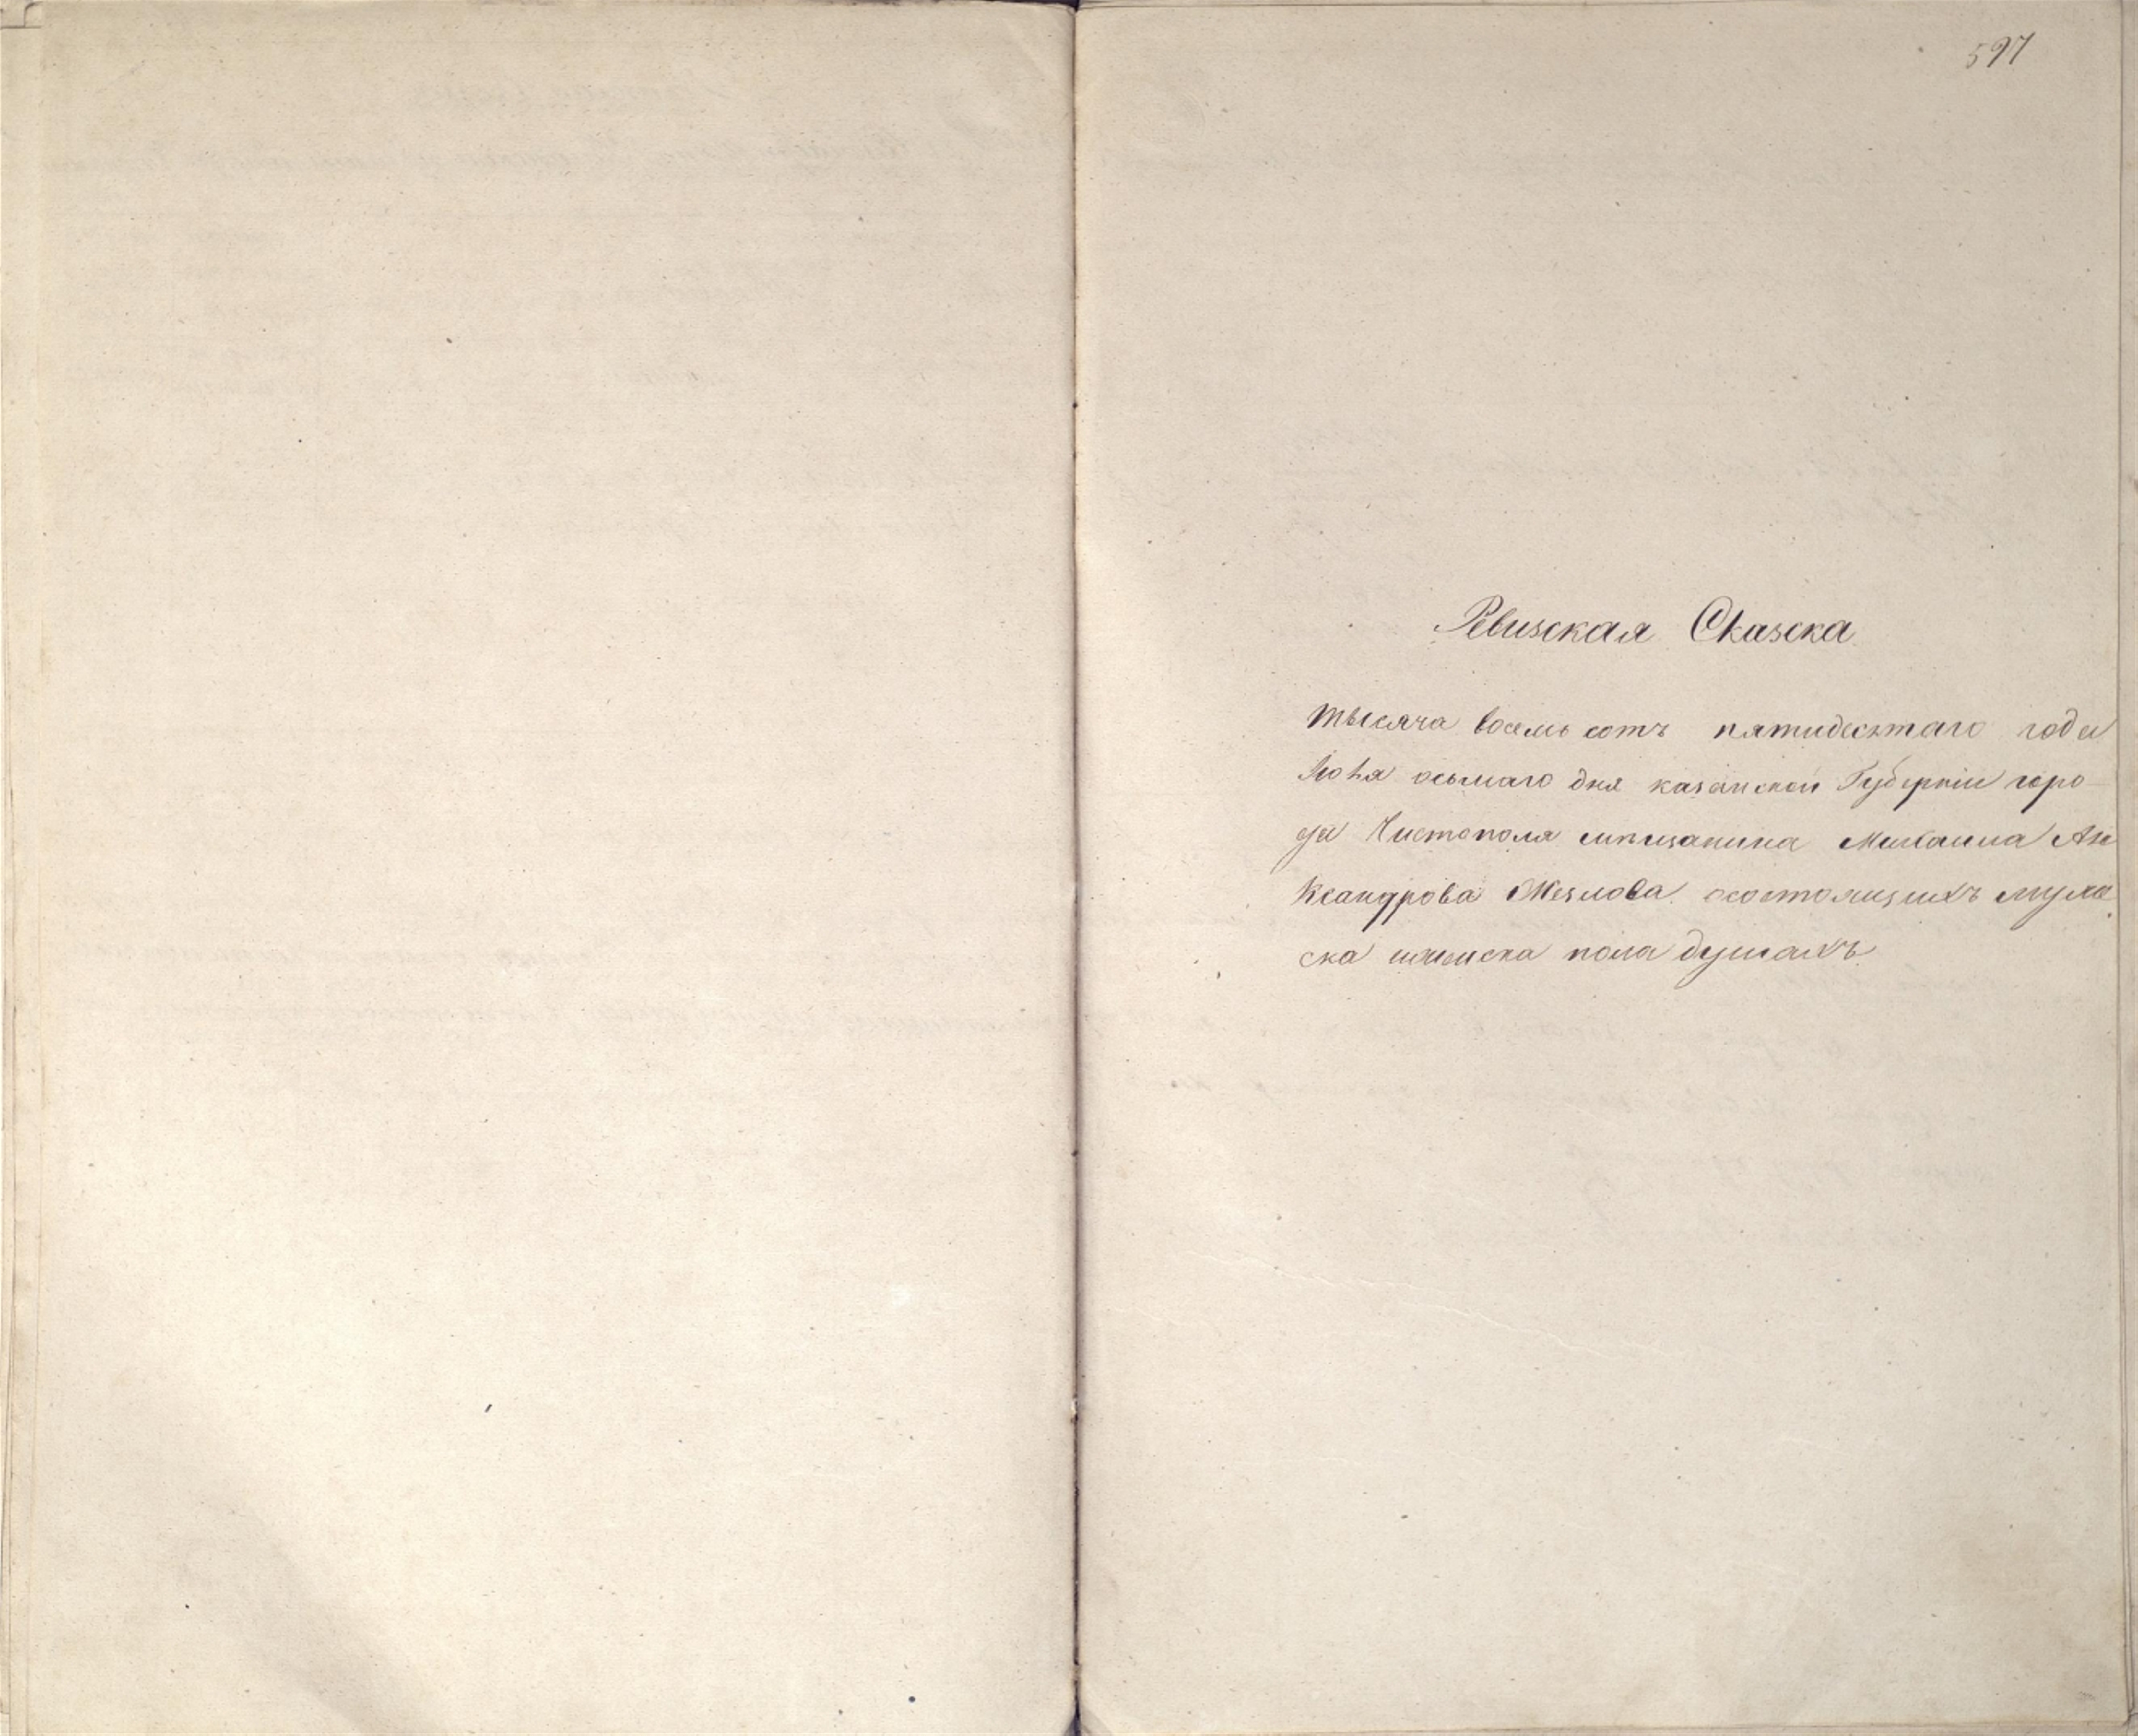 597
Ревиская Сказска
тысяча восемь сотъ пятидесятаго года
Июня осьмаго дня казанской Губерніи горо-
да Чистополя мѣщанина Михаила Але
ксандрова осостоящихъ муже
ска женска пола душахъ